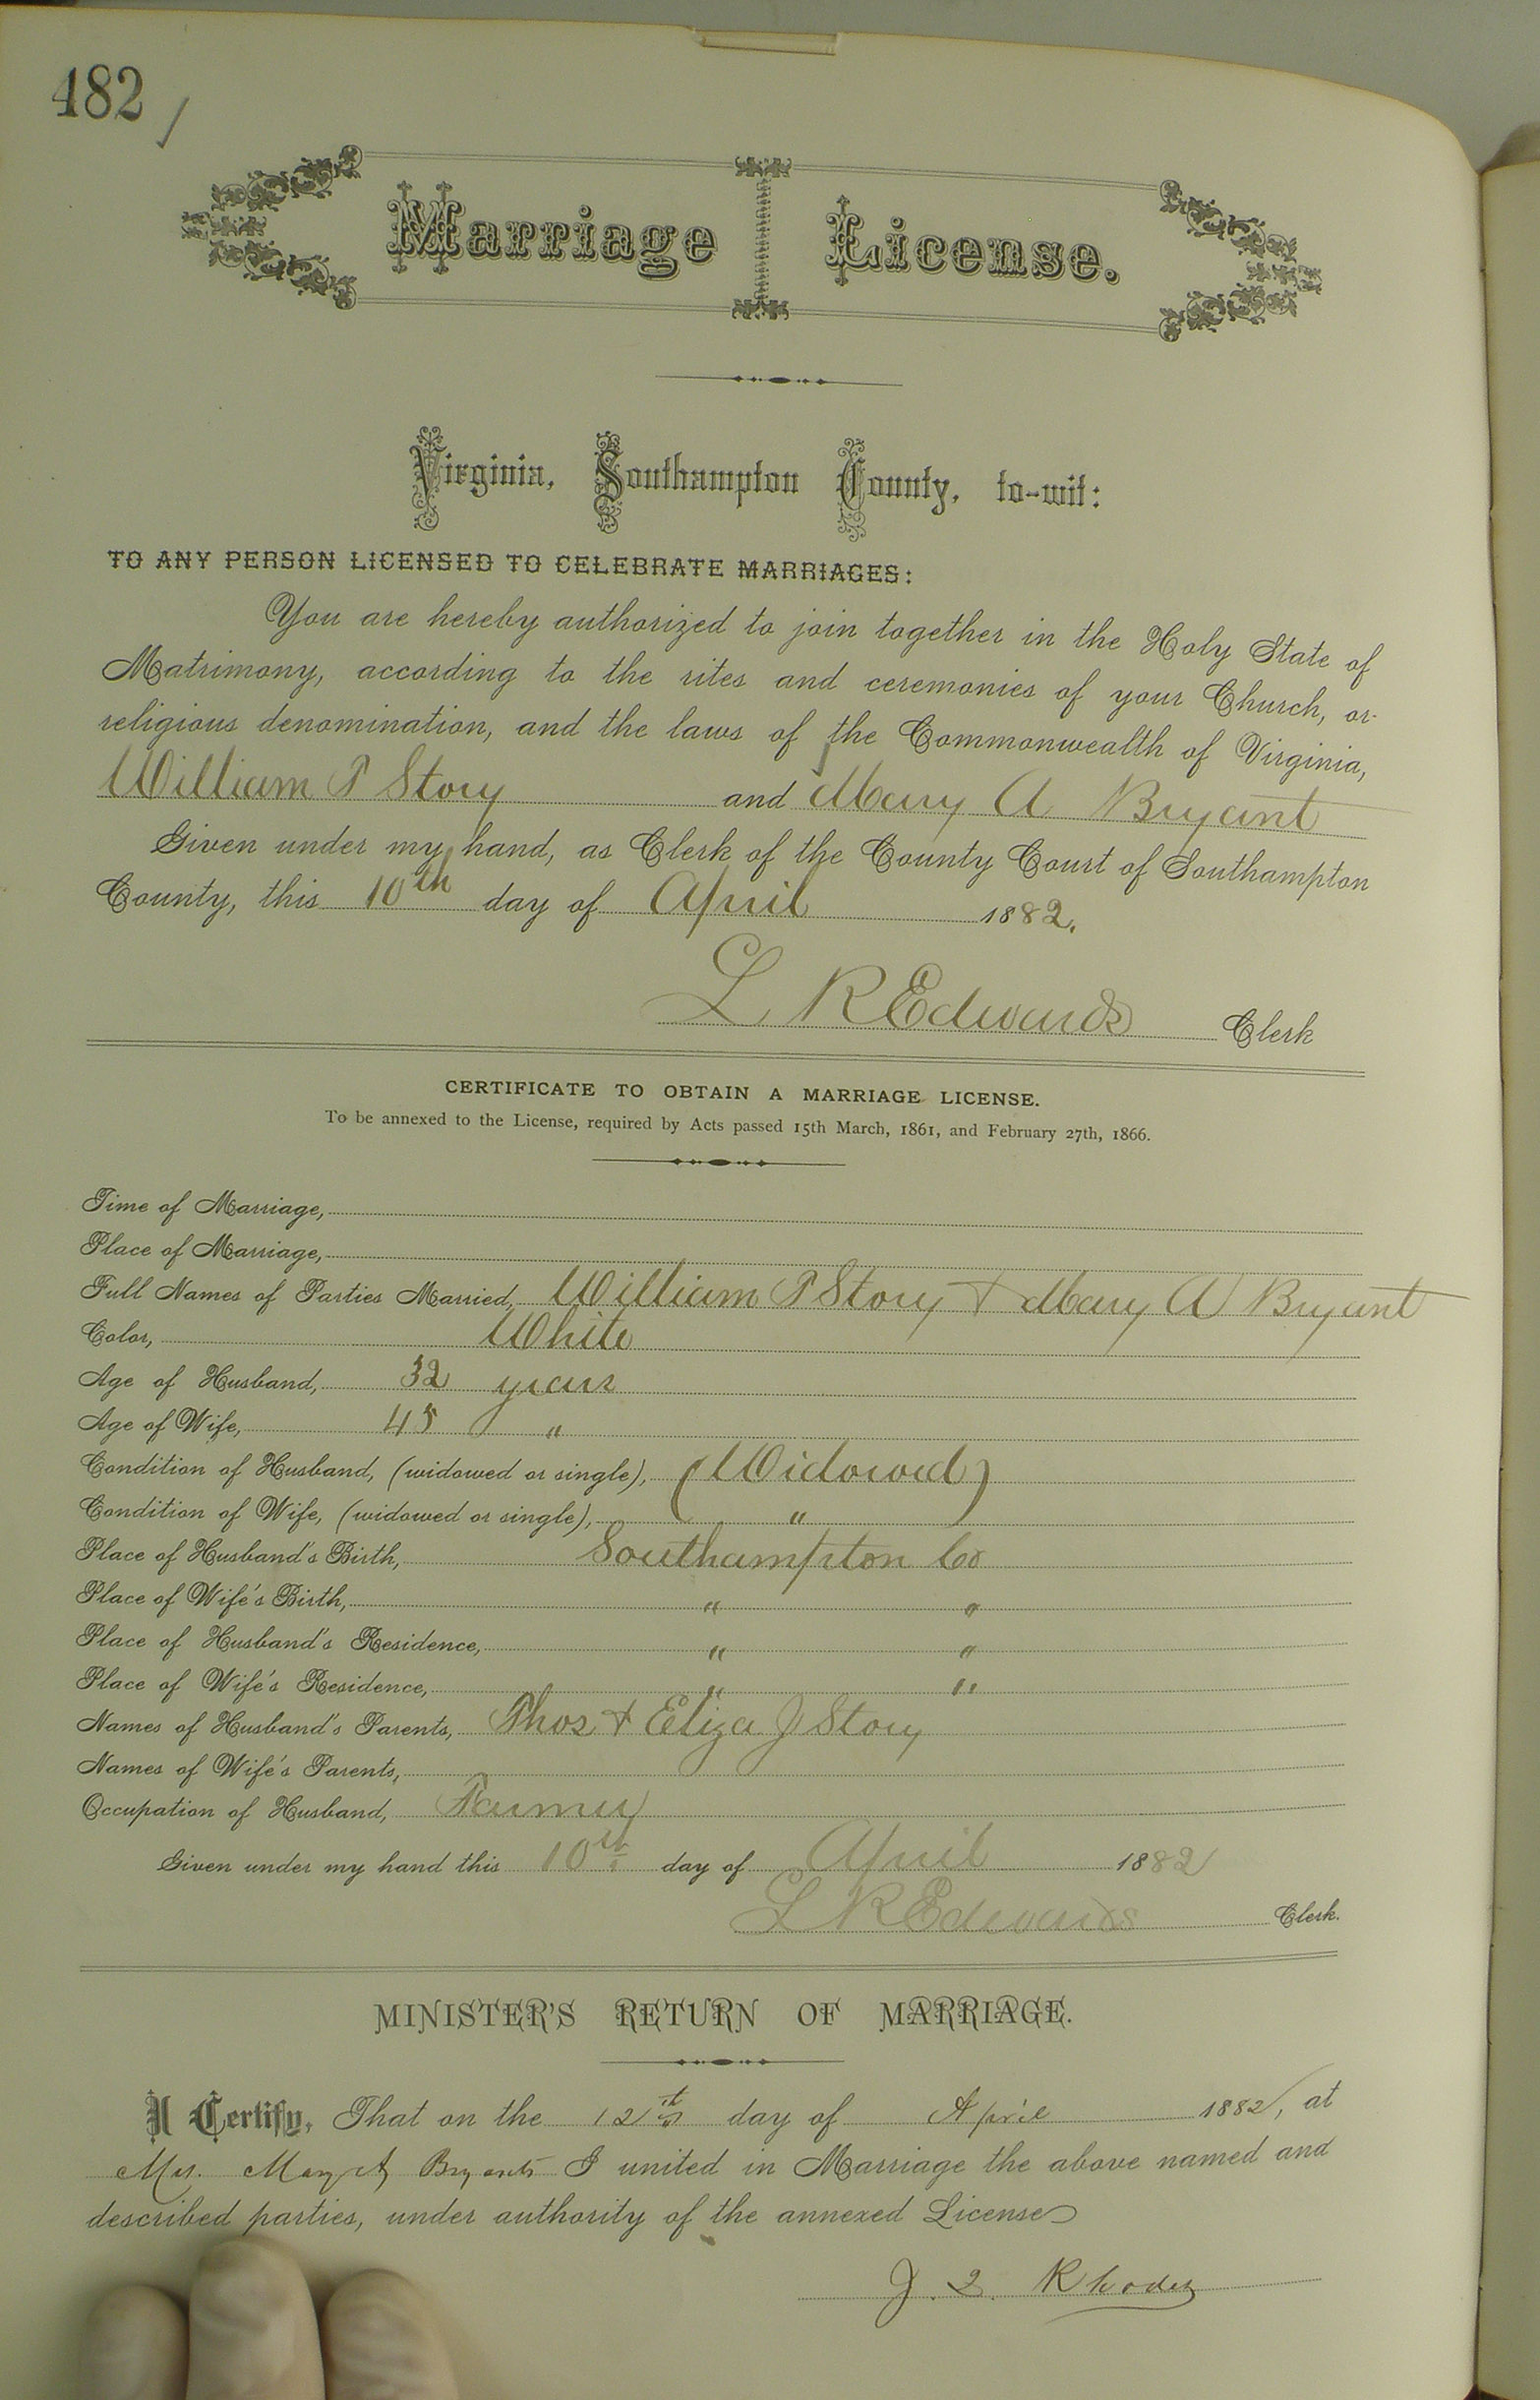 482
Marriage License.
Virginia, Southampton County, to-wit:
TO ANY PERSON LICENSED TO CELEBRATE MARRIAGES:
You are hereby authorized to join together in the Holy State of
Matrimony, according to the rites and ceremonies of your Church, or
religious denomination, and the laws of the Commonwealth of Virginia,
William P Story and Mary A Bryant
Given under my hand, as Clerk of the County Court of Southampton
County, this 10th day of April 1882.
L R Edwards Clerk
CERTIFICATE TO OBTAIN A MARRIAGE LICENSE.
To be annexed to the License, required by Acts passed 15th March, 1861, and February 27th, 1866.
Time of Marriage,
Place of Marriage,
Full Names of Parties Married, William P Story + Mary A Bryant
Color, White
Age of Husband, 32 years
Age of Wife, 45 "
Condition of Husband, (widowed or single), (Widowed)
Condition of Wife, (widowed or single), "
Place of Husband's Birth, Southampton Co
Place of Wife's Birth, " "
Place of Husband's Residence, " "
Place of Wife's Residence, " "
Names of Husband's Parents, Thos + Eliza J Story
Names of Wife's Parents,
Occupation of Husband, Farmer
Given under my hand this 10th day of April 1882
L R Edwards Clerk.
MINISTER'S RETURN OF MARRIAGE.
I Certify, That on the 12th day of April 1882, at
Mrs. Mary A Bryants I united in Marriage the above named and
described parties, under authority of the annexed License
J. 2. Rhodes